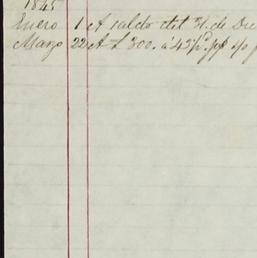 1845
Enero 1 A saldo del 31. de Dic
Marzo 22 A £ 300. á 43½